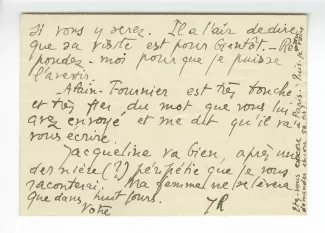 si vous y serez. Il a l'air de dire
que sa visite est pour bientôt. - Ré-
pondez-moi pour que je puisse
l'avertir.
- Alain-Fournier est très touché
et très fier du mot que vous lui
avez envoyé et me dit qu'il va
vous écrire.
Jacqueline va bien, après une
dernière (?) péripétie que je vous
raconterai. Ma femme ne se lèvera
que dans huit jours.
Votre JR
Êtes-vous encore à Paris? Puis-je vous
demander encore